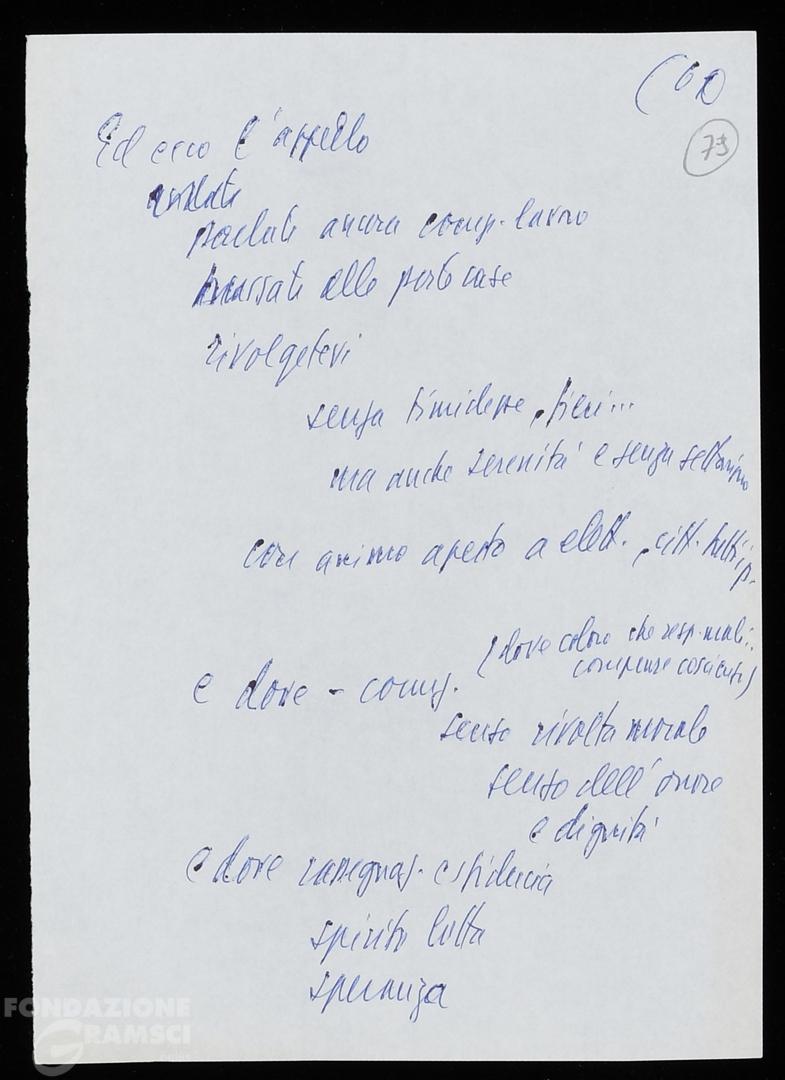 73
Ed ecco l'appello
andate
parlate ancora comp. lavoro
bussate alle porte case
rivolgetevi
senza timidezze, fieri...
ma anche serenità e senza settarismo
con animo aperto a elett., citt. tutti i p.
(dove coloro che resp. mali..
comprare coscienze)
e dove - corruz.
senso rivolta morale
senso dell'onore
e dignità
e dove rassegnaz. e sfiducia
spirito lotta
speranza
FONDAZIONE
GRAMSCI